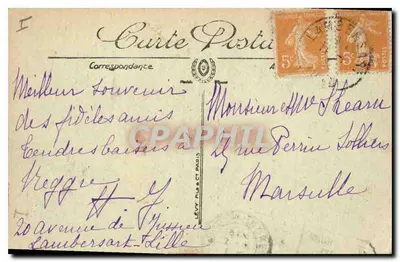 I
Carte Posta
Correspondance
5c
LAMBERSART
Meilleur souvenir
des fidèles amis
Tendres baisers à
Reggie
H J
20 avenue de Jussieu
Lambersart-Lille
Monsieur et Me Shearn
25 rue Perrin Solliers
Marseille
LÉVY FILS & Cie PARIS
CPARHIL